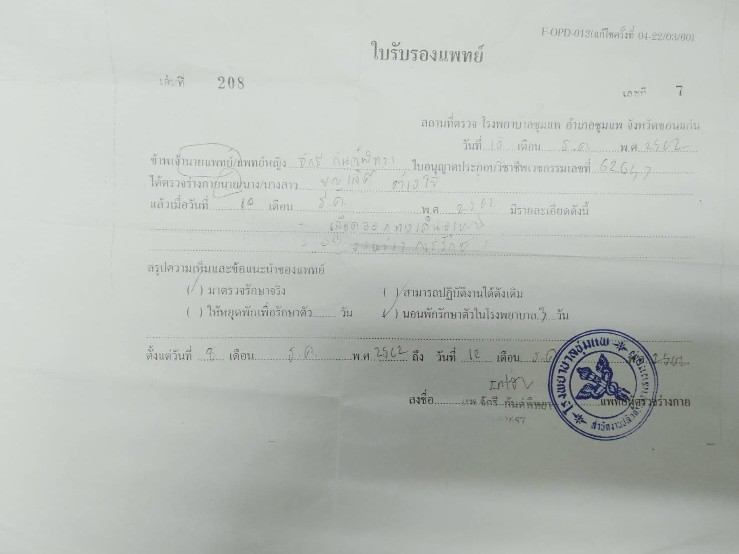 F-OPD-013(แก้ไขครั้งที่ 04-22/03/60)
ใบรับรองแพทย์
เล่มที่ 208
เลขที่ 7
สถานที่ตรวจ โรงพยาบาลชุมแพ อำเภอชุมแพ จังหวัดขอนแก่น
วันที่ 10 เดือน ธ.ค. พ.ศ. 2562
ข้าพเจ้านายแพทย์/แพทย์หญิง จักรี กันต์พิทยา ใบอนุญาตประกอบวิชาชีพเวชกรรมเลขที่
ได้ตรวจร่างกายนาย/นาง/นางสาว บุญเลิศ
แล้วเมื่อวันที่ 10 เดือน ธ.ค. พ.ศ. 2562 มีรายละเอียดดังนี้
สรุปความเห็นและข้อแนะนำของแพทย์
( / ) มาตรวจรักษาจริง ( ) สามารถปฏิบัติงานได้ดังเดิม
( ) ให้หยุดพักเพื่อรักษาตัว วัน ( / ) นอนพักรักษาตัวในโรงพยาบาล 3 วัน
ตั้งแต่วันที่ 8 เดือน ธ.ค. พ.ศ. 2562 ถึง วันที่ 10 เดือน ธ.ค. พ.ศ. 2562
ลงชื่อ นพ.จักรี กันต์พิทยา แพทย์ผู้ตรวจร่างกาย
โรงพยาบาลชุมแพ